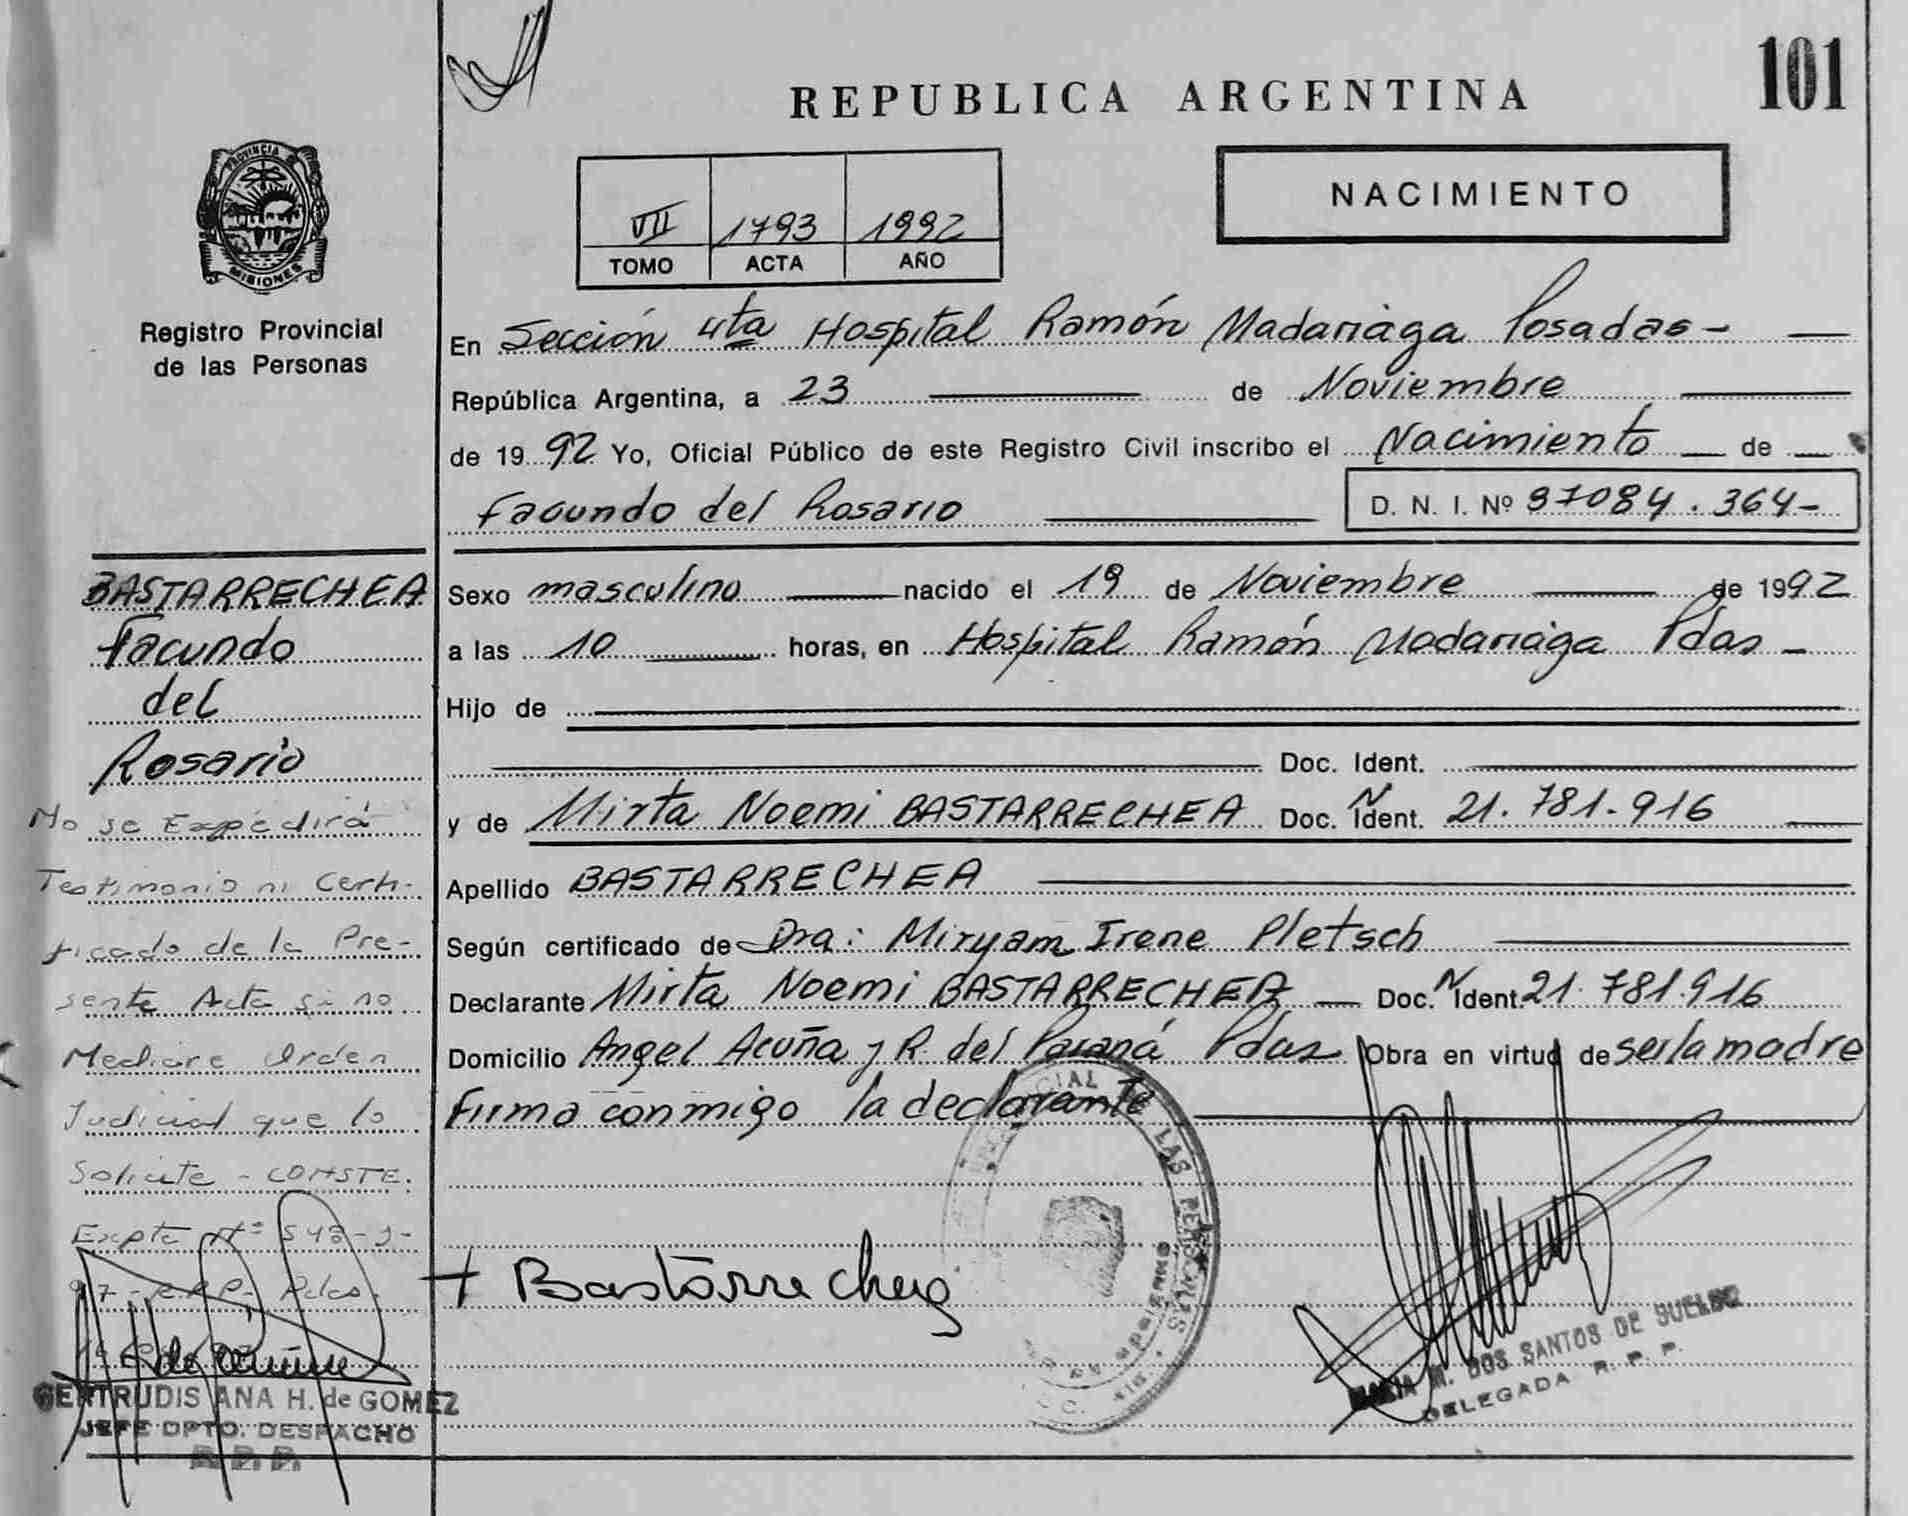 REPUBLICA ARGENTINA
101
PROVINCIA DE
MISIONES
Registro Provincial
de las Personas
VII 1793 1992
TOMO ACTA AÑO
NACIMIENTO
En Sección 4ta Hospital Ramón Madariaga Posadas -
República Argentina, a 23 de Noviembre
de 1992 Yo, Oficial Público de este Registro Civil inscribo el Nacimiento de
Facundo del Rosario D. N. I. Nº 37084.364-
Sexo masculino nacido el 19 de Noviembre de 1992
a las 10 horas, en Hospital Ramón Madariaga Pdas -
Hijo de
Doc. Ident.
y de Mirta Noemi BASTARRECHEA Doc. N Ident. 21.781.916
Apellido BASTARRECHEA
Según certificado de Dra: Miryam Irene Pletsch
Declarante Mirta Noemi BASTARRECHEA Doc. N Ident. 21.781.916
Domicilio Angel Acuña y R. del Paraná Pdas Obra en virtud de ser la madre
Firma conmigo la declarante
+ Bastarrechea
CIAL
LAS PERSONAS
MARIA M. DOS SANTOS DE SUELDO
DELEGADA R. P. P.
BASTARRECHEA
Facundo
del
Rosario
No se Expedirá
Testimonio ni Certi-
ficado de la Pre-
sente Acta si no
Mediare Orden
Judicial que lo
Solicite - CONSTE.
Expte Nº 543-J-
97 - R.P.P. Pdas.
GERTRUDIS ANA H. de GOMEZ
JEFE DPTO. DESPACHO
R. P. P.